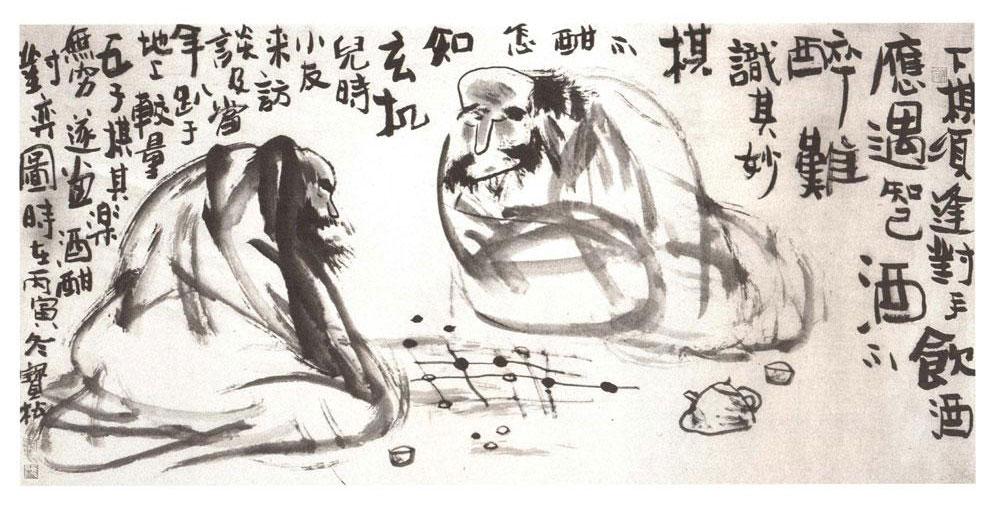 下棋須逢對手飲酒
應遇知己酒不
醉難
識其妙
棋
不
酣
怎
知
玄机
兒時
小友
来訪
談及當
年趴于
地上較量
五子棋其樂
無穷遂畫酒酣
對弈圖時在丙寅冬寶